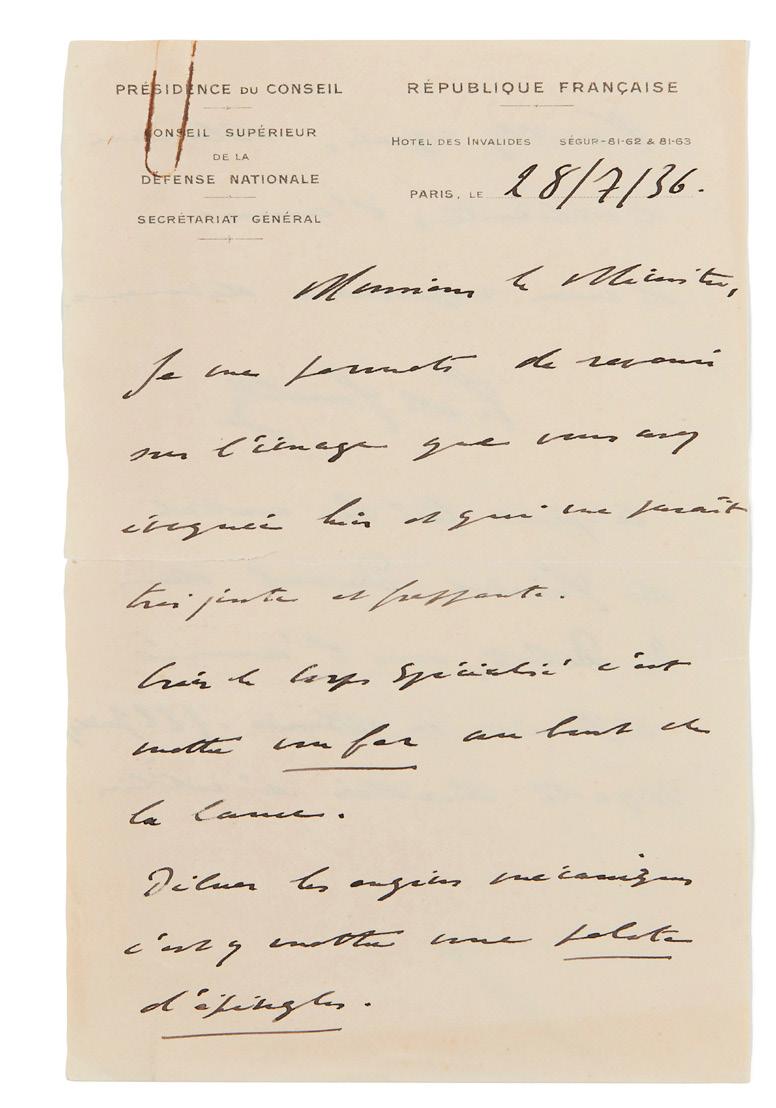 PRÉSIDENCE DU CONSEIL
CONSEIL SUPÉRIEUR
DE LA
DÉFENSE NATIONALE
SECRÉTARIAT GÉNÉRAL
RÉPUBLIQUE FRANÇAISE
HOTEL DES INVALIDES SÉGUR-81-62 & 81-63
PARIS, LE 28/7/36.
Monsieur le Ministre,
Je me permets de revenir
sur l'image que vous avez
évoquée hier et qui me paraît
très juste et frappante.
Créer le Corps Spécialisé c'est
mettre un fer au bout de
la lance.
Diluer les engins mécaniques
c'est y mettre une pelote
d'épingles.